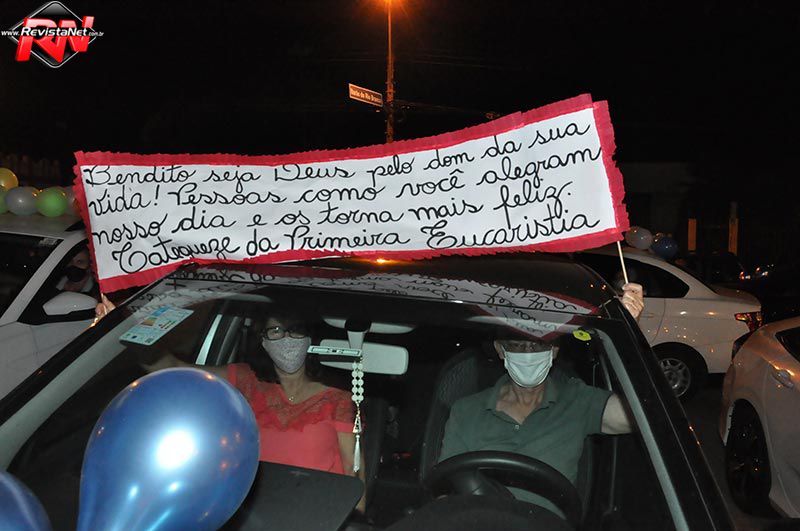 RN
www.RevistaNet.com.br
Bendito seja Deus pelo dom da sua
vida! Pessoas como você alegram
nosso dia e os torna mais feliz.
Catequeze da Primeira Eucaristia